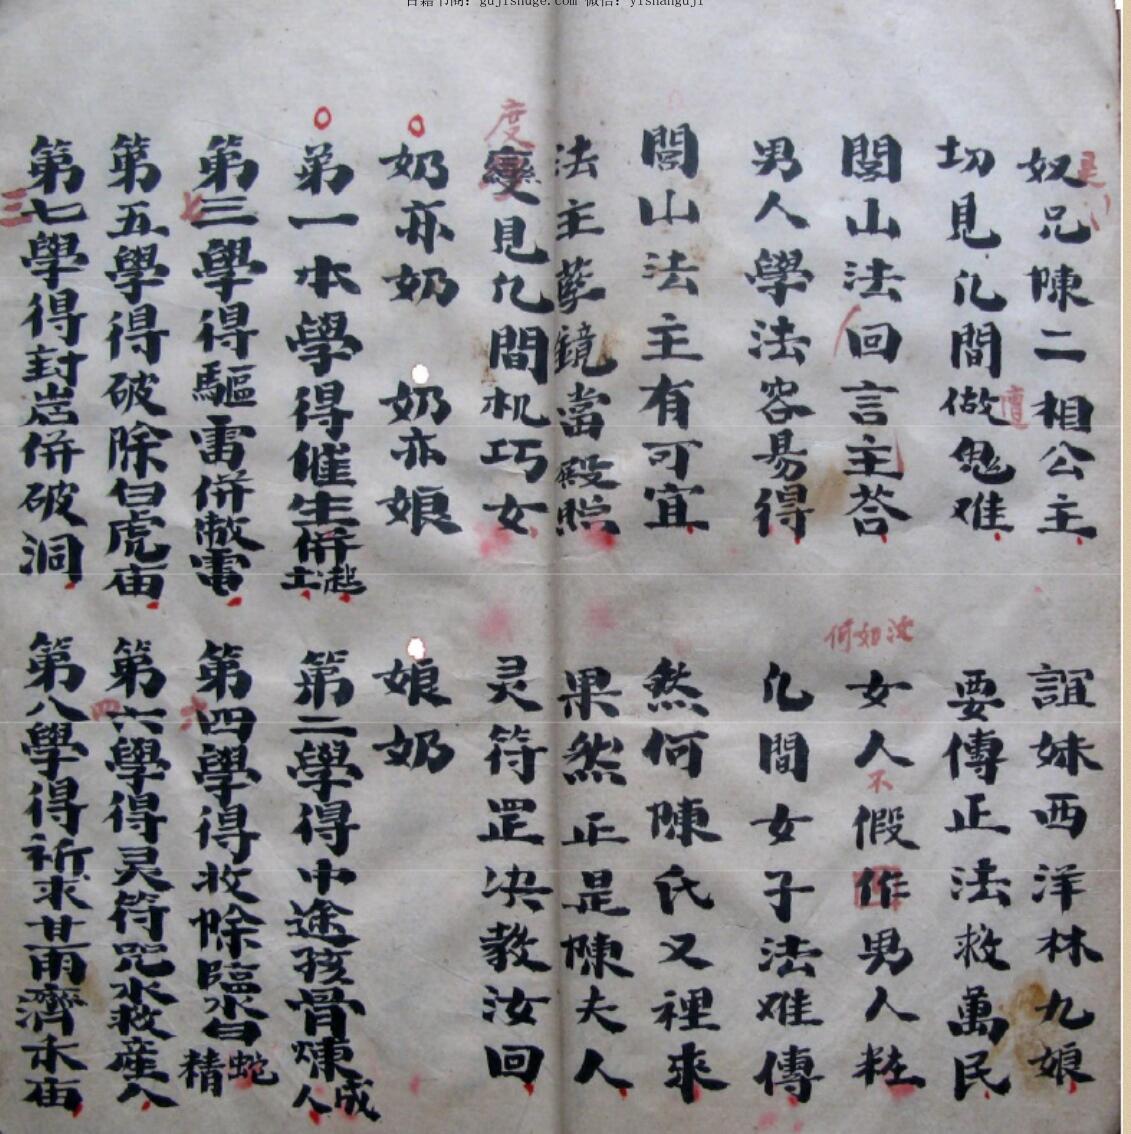 古籍书阁：gujishuge.com 微信：yishanguji
奴兄陳二相公主 誼妹西洋林九娘
切見凡間做鬼难 要傳正法救萬民
壇
閭山法回言主荅 女人假作男人粧
汝如何
不
男人學法容易得 凡間女子法难傳
閭山法主有可宜 然何陳氏又裡來
法主孽鏡當殿照 果然正是陳夫人
變見凡間机巧女 灵符罡决教汝回
度
奶亦奶 奶亦娘 娘奶
弟一本學得催生併起土 第二學得中途孩骨煉成人
第三學得驅雷併敝雷 第四學得收除臨水白蛇精
七
六
第五學得破除白虎庙 第六學得灵符咒水救産人
四
第七學得封岩併破洞 第八學得祈求甘雨濟禾苗
三